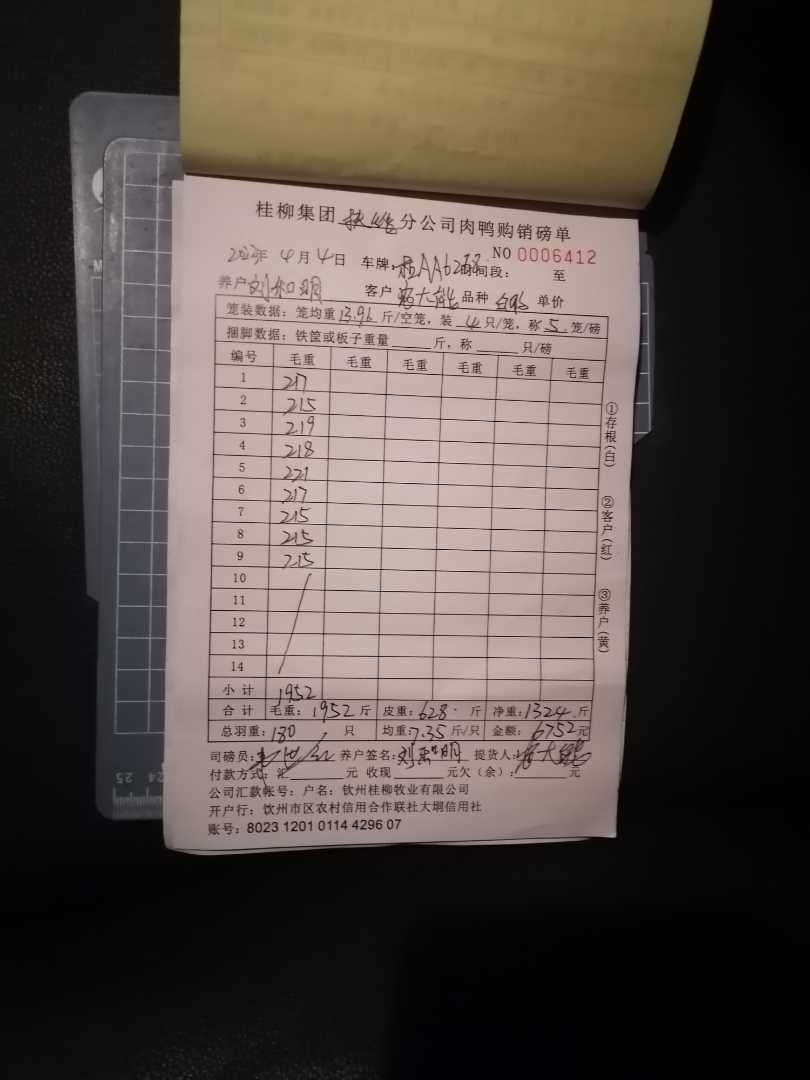 桂柳集团 分公司肉鸭购销磅单
NO 0006412
2023年 4月 4日 车牌: 桂AA6268 时间段: 至
养户 刘和明 客户 大能 品种 单价
笼装数据: 笼均重 13.96 斤/空笼, 装 4 只/笼, 称 5 笼/磅
捆脚数据: 铁筐或板子重量 斤, 称 只/磅
编号 毛重 毛重 毛重 毛重 毛重 毛重
1 217
2 215
3 219
4 218
5 221
6 217
7 215
8 215
9 215
10
11
12
13
14
小计 1952
合计 毛重: 1952 斤 皮重: 628 斤 净重: 1324 斤
总羽重: 180 只 均重: 7.35 斤/只 金额: 6752 元
司磅员: 养户签名: 刘和明 提货人: 大能
付款方式: 汇 元 收现 元欠(余): 元
公司汇款帐号: 户名: 钦州桂柳牧业有限公司
开户行: 钦州市区农村信用合作联社大垌信用社
账号: 8023 1201 0114 4296 07
①存根(白)
②客户(红)
③养户(黄)
25 24